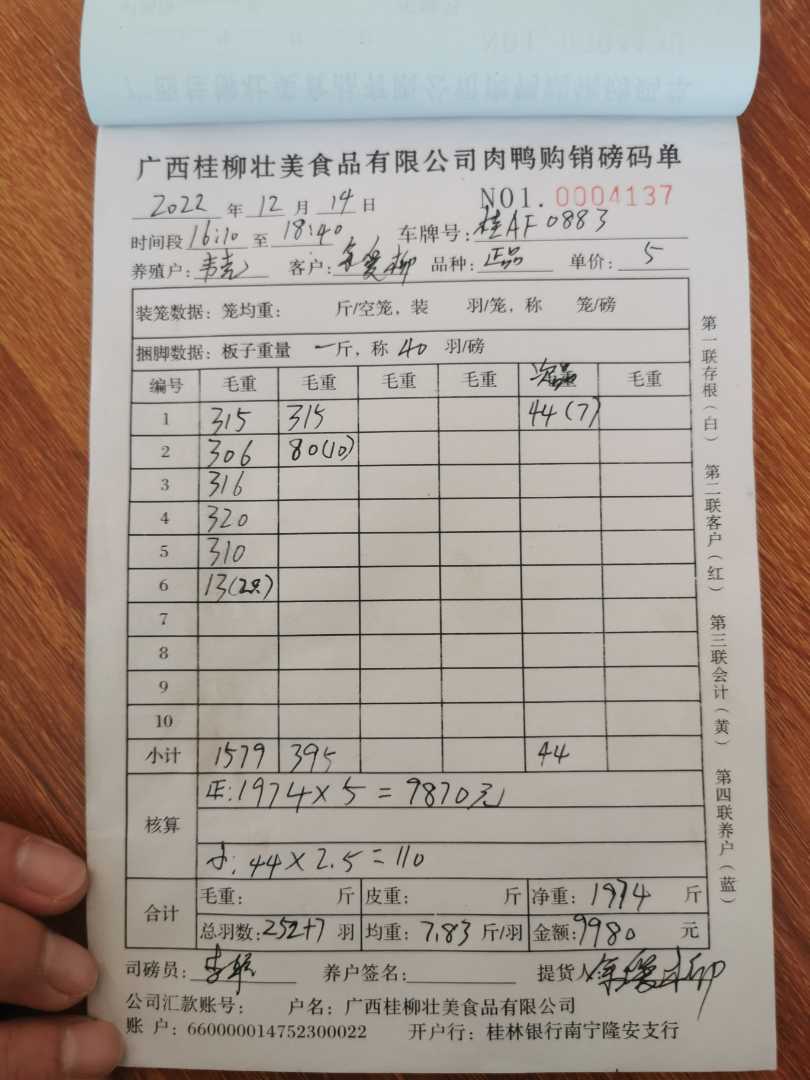 广西桂柳壮美食品有限公司肉鸭购销磅码单
2022 年 12 月 14 日 NO1. 0004137
时间段 16:10 至 18:40 车牌号: 桂AF0883
养殖户: 韦 客户: 柳 品种: 正品 单价: 5
装笼数据: 笼均重: 斤/空笼, 装 羽/笼, 称 笼/磅
捆脚数据: 板子重量 一斤, 称 40 羽/磅
编号 毛重 毛重 毛重 毛重 毛重
1 315 315 44(7)
2 306 80(10)
3 316
4 320
5 310
6 13(2只)
7
8
9
10
小计 1579 395 44
核算
正: 1974×5=9870元
44×2.5=110
合计
毛重: 斤 皮重: 斤 净重: 1974 斤
总羽数: 252+7 羽 均重: 7.83 斤/羽 金额: 9980 元
司磅员: 李 养户签名: 提货人: 柳
公司汇款账号: 户名: 广西桂柳壮美食品有限公司
账 户: 660000014752300022 开户行: 桂林银行南宁隆安支行
第一联存根(白) 第二联客户(红) 第三联会计(黄) 第四联养户(蓝)